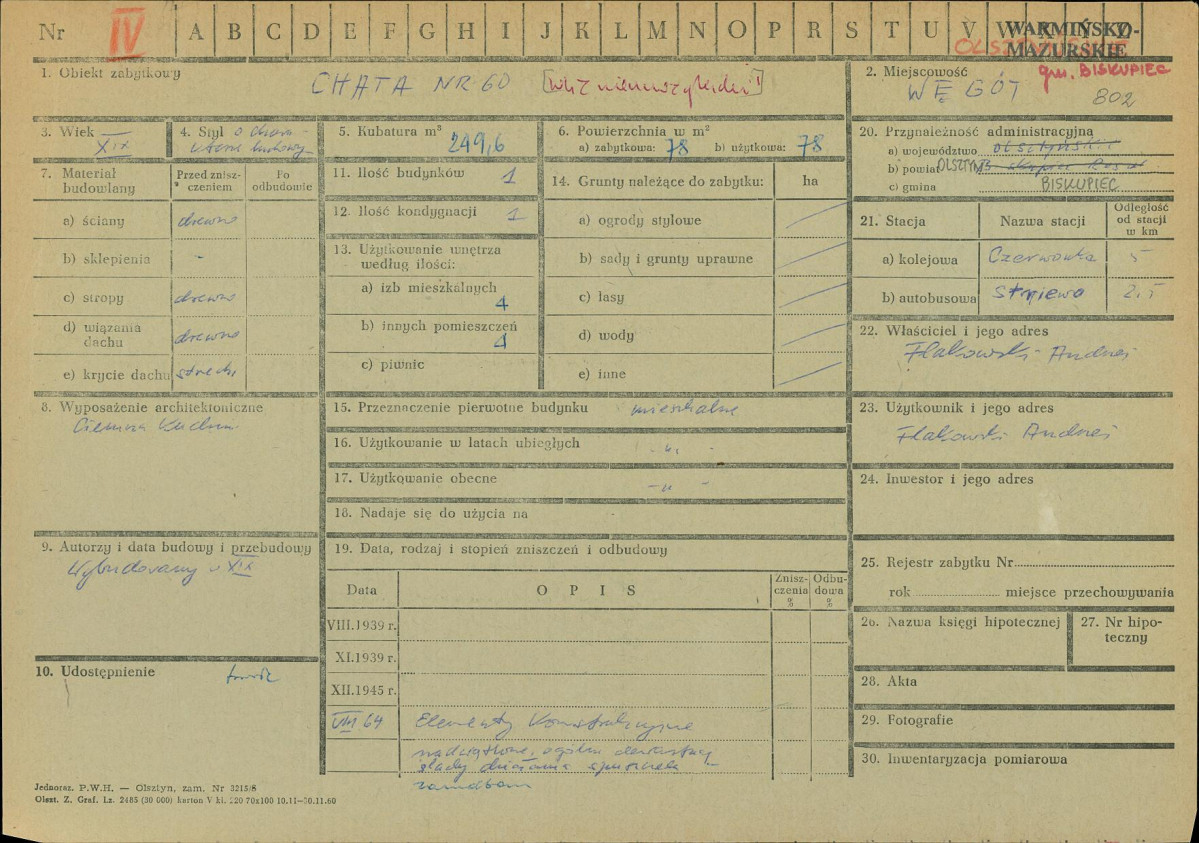 Nr IV A B C D E F G H I J K L M N O P R S T U V W
WARMIŃSKO-
MAZURSKIE
1. Obiekt zabytkowy
CHATA NR 60
2. Miejscowość gm. BISKUPIEC
WĘGÓJ 802
3. Wiek
XIX
4. Styl o charakterze ludowym
5. Kubatura m³
249,6
6. Powierzchnia w m²
a) zabytkowa: 78 b) użytkowa: 78
20. Przynależność administracyjna
a) województwo OLSZTYŃSKIE
b) powiat OLSZTYN
c) gmina BISKUPIEC
7. Materiał budowlany
Przed zniszczeniem
Po odbudowie
a) ściany drewno
b) sklepienia -
c) stropy drewno
d) wiązania dachu drewno
e) krycie dachu
11. Ilość budynków 1
12. Ilość kondygnacji 1
13. Użytkowanie wnętrza
według ilości:
a) izb mieszkalnych
4
b) innych pomieszczeń
4
c) piwnic
14. Grunty należące do zabytku: ha
a) ogrody stylowe
b) sady i grunty uprawne
c) lasy
d) wody
e) inne
21. Stacja Nazwa stacji
Odległość
od stacji
w km
a) kolejowa Czerwonka 5
b) autobusowa Stryjewo 2,5
22. Właściciel i jego adres
Flakowski Andrzej
8. Wyposażenie architektoniczne
Ciemna kuchnia
15. Przeznaczenie pierwotne budynku mieszkalne
16. Użytkowanie w latach ubiegłych -"-
17. Użytkowanie obecne -"-
18. Nadaje się do użycia na
23. Użytkownik i jego adres
Flakowski Andrzej
24. Inwestor i jego adres
9. Autorzy i data budowy i przebudowy
Wybudowany w XIX
10. Udostępnienie
19. Data, rodzaj i stopień zniszczeń i odbudowy
Data OPIS
Zniszczenia %
Odbudowa %
VIII.1939 r.
XI.1939 r.
XII.1945 r.
VIII 64 Elementy konstrukcyjne
25. Rejestr zabytku Nr
rok miejsce przechowywania
26. Nazwa księgi hipotecznej
27. Nr hipoteczny
28. Akta
29. Fotografie
30. Inwentaryzacja pomiarowa
Jednoraz. P.W.H. — Olsztyn, zam. Nr 3215/8
Olszt. Z. Graf. Lz. 2485 (30 000) karton V kl. 220 70x100 10.11—30.11.60